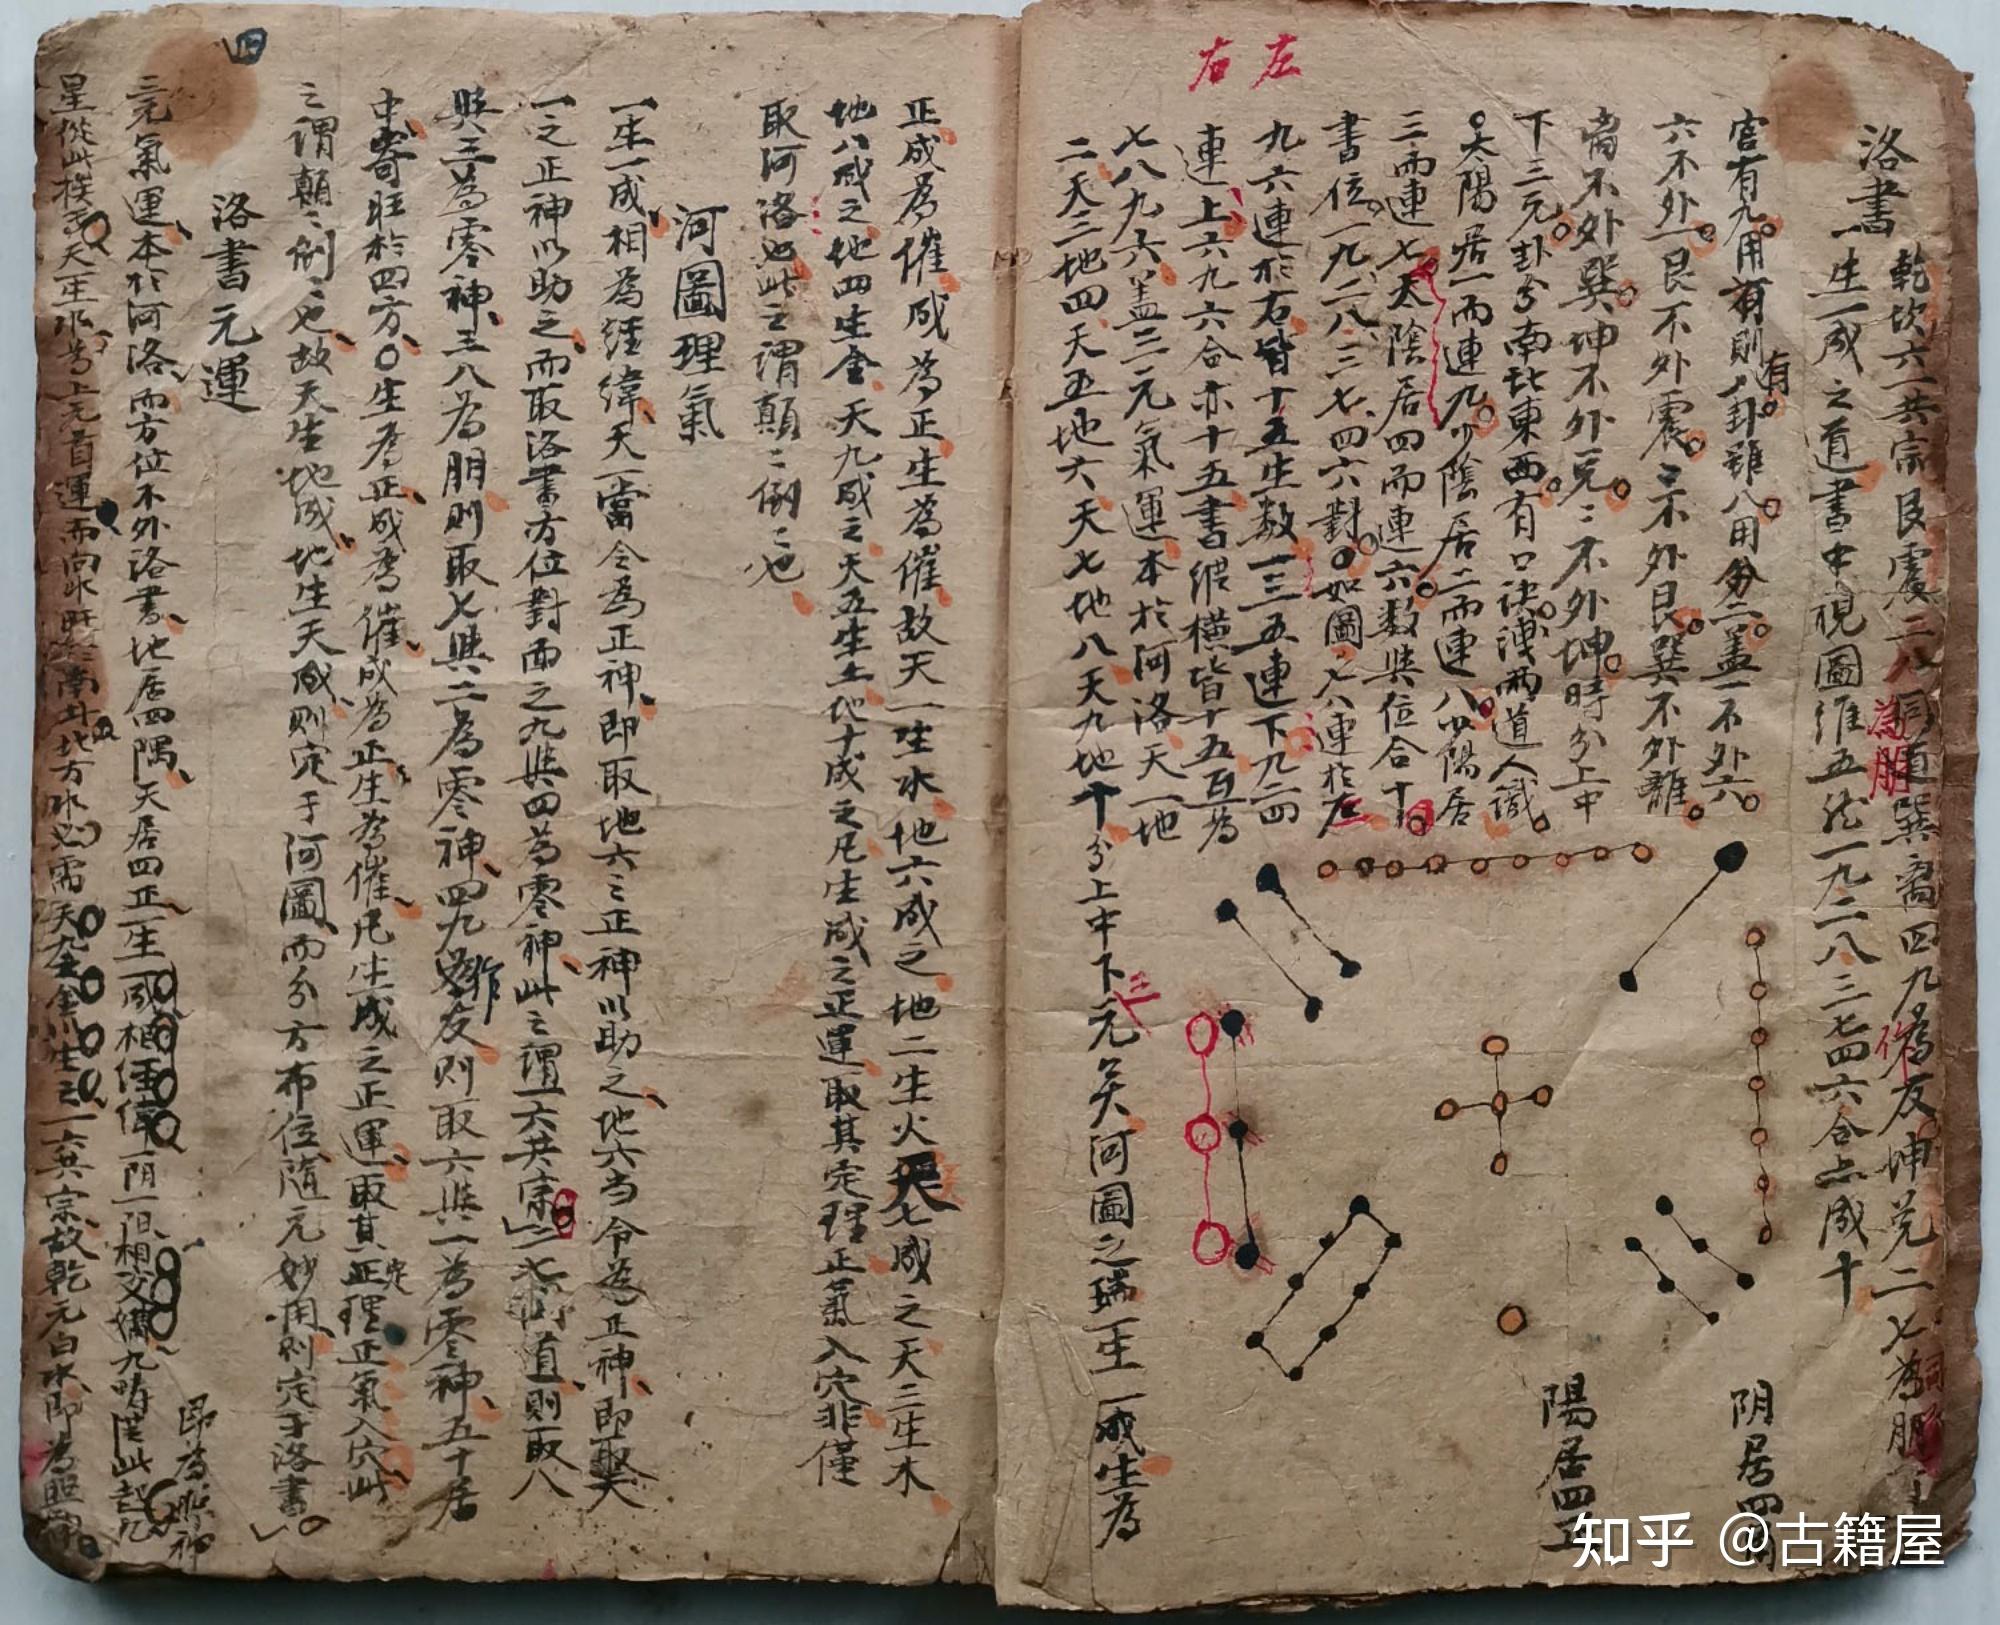 右 左
洛書
乾坎六一共宗艮震三八為朋巽離四九為友坤兌二七為
一生一成之道書中視圖維五能一九二八三七四六合亦成十
宮有九用有則八卦雖八用分二蓋一不外六
有
六不外一艮不外震震不外艮巽不外離
离不外巽坤不外兌兌不外坤時分上中
下三元卦分南北東西有口訣洩兩道人識
太陽居一而連九少陰居二而連八少陽居
三而連七太陰居四而連六数與位合十
書位一九二八三七四六對如圖七八連於左
九六連於右皆十五生数一三五連下九二四
連上六九六合亦十五書縱横皆十五百為
七八九六蓋三元氣運本於河洛天一地
二天三地四天五地六天七地八天九地十分上中下元矣河圖之瑞一生一成生為
三
陽居四正
阴居四
正成為催成為正生為催故天一生水地六成之地二生火天七成之天三生木
地八成之地四生金天九成之天五生土地十成之凡生成之正運取其定理正氣入穴非僅
取河洛也此之謂顛二倒二也
河圖理氣
一生一成相為經緯天一當令為正神即取地六之正神以助之地六当令為正神即取天
一之正神以助之而取洛書方位對面之九與四為零神此之謂一六共宗二七同道則取八
與三為零神三八為朋則取七與二為零神四九作友則取六與一為零神五十居
中寄旺於四方生為正成為催成為正生為催凡生成之正運取其正理正氣入穴此
定
之謂顛二倒二也故天生地成地生天成則定于河圖而分方布位隨元妙用則定于洛書
洛書元運
四
三元氣運本於河洛而方位不外洛書地居四隅天居四正一生一成相經緯一阴一阳相交媾九疇從此起九
即為照神
星從此挨天一生水為上元首運而向水旺於南斗北方水必需天九金以生之一六共宗故乾元白水即為照
知乎 @古籍屋